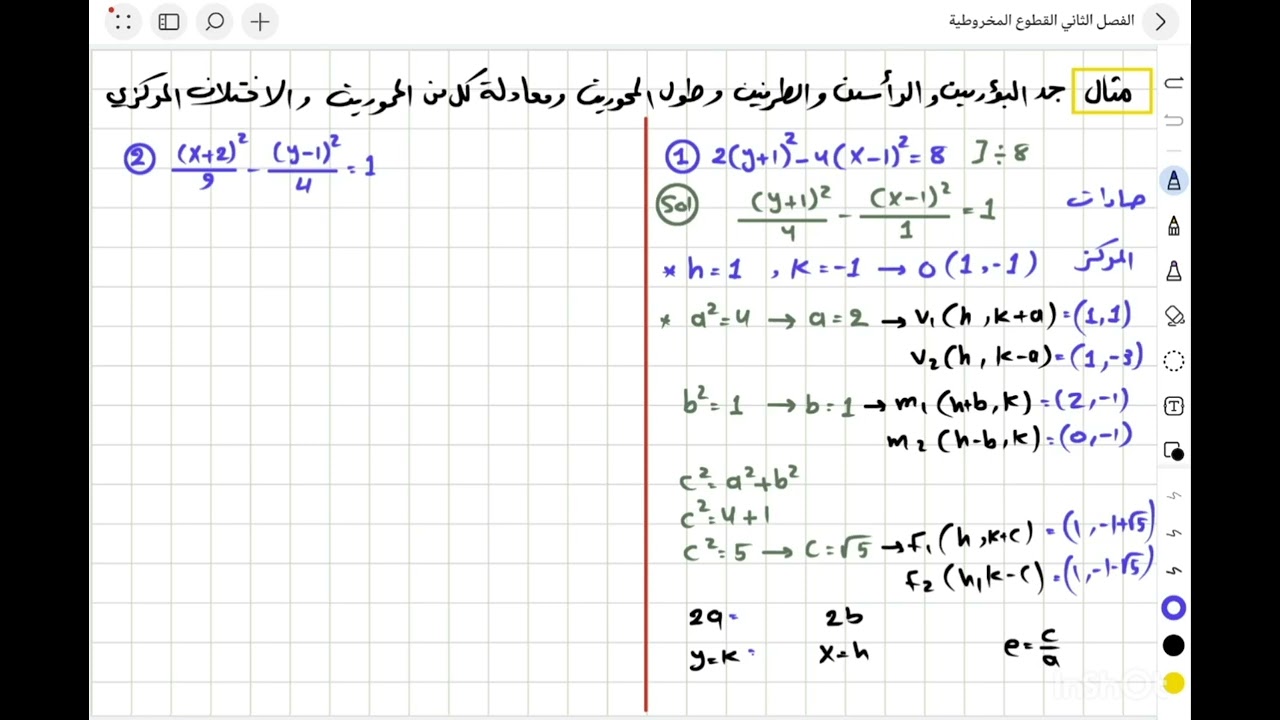 الفصل الثاني القطوع المخروطية
مثال جد البؤرتين والرأسين والطرفين وطول المحورين ومعادلة كل من المحورين والاختلاف المركزي
① 2(y+1)² - 4(x-1)² = 8 ] ÷ 8
Sol (y+1)²/4 - (x-1)²/1 = 1 صادات
* h = 1 , k = -1 → o (1,-1) المركز
* a² = 4 → a = 2 → v₁(h, k+a) = (1,1)
v₂(h, k-a) = (1,-3)
b² = 1 → b = 1 → m₁(h+b, k) = (2,-1)
m₂(h-b, k) = (0,-1)
c² = a² + b²
c² = 4 + 1
c² = 5 → c = √5 → f₁(h, k+c) = (1, -1+√5)
f₂(h, k-c) = (1, -1-√5)
2a = 2b
y = k = x = h e = c/a
② (x+2)²/9 - (y-1)²/4 = 1
InShOt